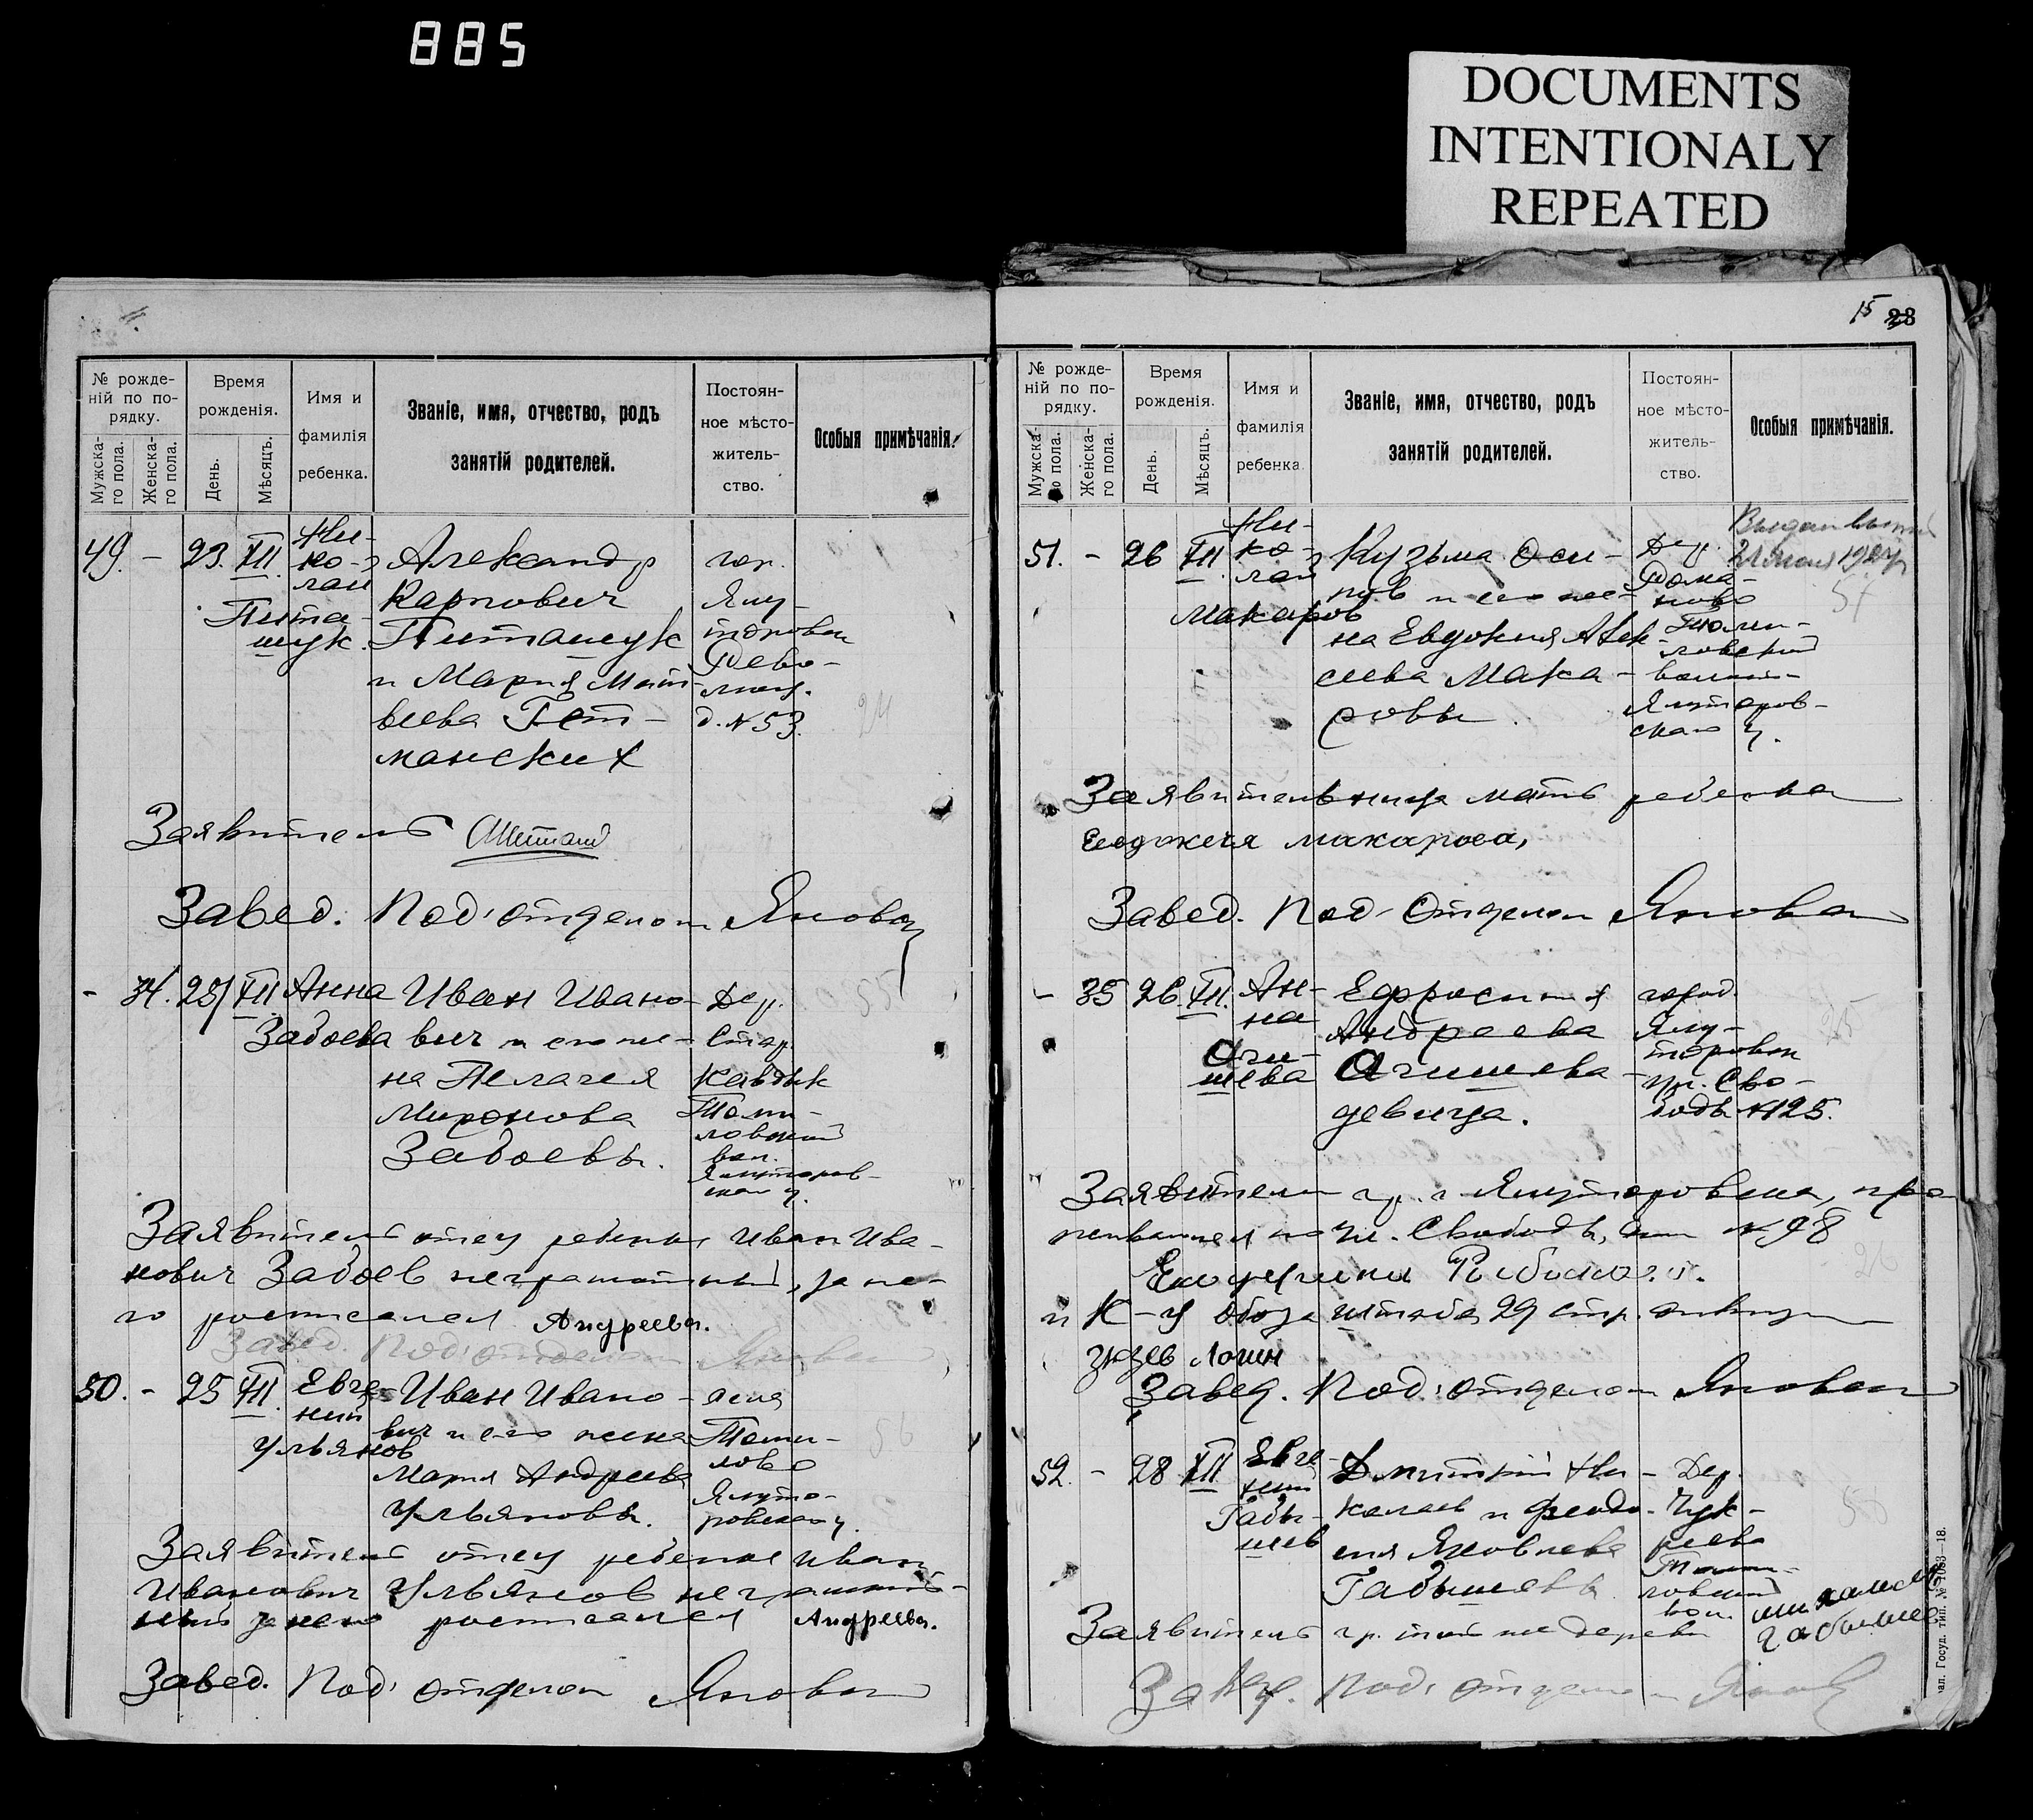 885
DOCUMENTS
INTENTIONALY
REPEATED
№ рожде-
ній по по-
рядку.
Мужска-
го пола.
Женска-
го пола.
Время
рожденія.
День.
Мѣсяцъ.
Имя и
фамилія
ребенка.
Званіе, имя, отчество, родъ
занятій родителей.
Постоян-
ное мѣсто-
житель-
ство.
Особыя примѣчанія.
49. - 23. XII. Ни-
ко-
лай
Пита-
шук.
Александр
Карпович
Питашук
и Мария Мат-
веева Гет-
манских
гор.
Ялу-
торовск
д. № 53.
24
Заявитель
Завед. Под'отделом
- 34. 25/XII Анна
Задоева
Иван Ивано-
вич и его же-
на Пелагея
Миронова
Задоевы.
Дер.
Стар.
Кавдык
Томи-
ловской
вол.
Ялуторов-
ского у.
55
Заявитель отец ребенка Иван Ива-
нович Задоев неграмотный, за не-
го росписался Андреева.
Завед. Под'отделом
50. - 25 XII. Евге-
ний
Ульянов
Иван Ивано-
вич и его жена
Мария Андреева
Ульяновы.
села
Томи-
лово
Ялуто-
ровского у.
56
Заявитель отец ребенка Иван
Иванович Ульянов неграмот-
ный за него росписался Андреева.
Завед. Под'отделом
15 23
№ рожде-
ній по по-
рядку.
Мужска-
го пола.
Женска-
го пола.
Время
рожденія.
День.
Мѣсяцъ.
Имя и
фамилія
ребенка.
Званіе, имя, отчество, родъ
занятій родителей.
Постоян-
ное мѣсто-
житель-
ство.
Особыя примѣчанія.
51. - 26 XII. Ни-
ко-
лай
Макаров
Кузьма Оси-
пов и его же-
на Евдокия Алек-
сеева Мака-
ровы.
Дер.
Томи-
ловской
волости
Ялуторов-
ского у.
57
Заявительница мать ребенка
Евдокея макарова,
Завед. Под'Отделом
- 35 26. XII. Ан-
на
Агишева
Ефросиния
Андреева
Агишева
девица.
город.
Ялу-
торовск
ул. Сво-
боды №125.
25
Заявители гр. г. Ялуторовска, про
по ул. Свободы, № 98
26
Завед. Под'отделом
52. - 28 XII Евге-
ний
Габы-
шев
Дмитрий Ни-
колаев и Феодо-
сия Яковлева
Габышевы
Дер.
Чук-
реева
Томи-
ловской
вол.
58
Заявитель гр. той же деревни
Завед. Под'отделом
Госуд. тип. № 1083—18.